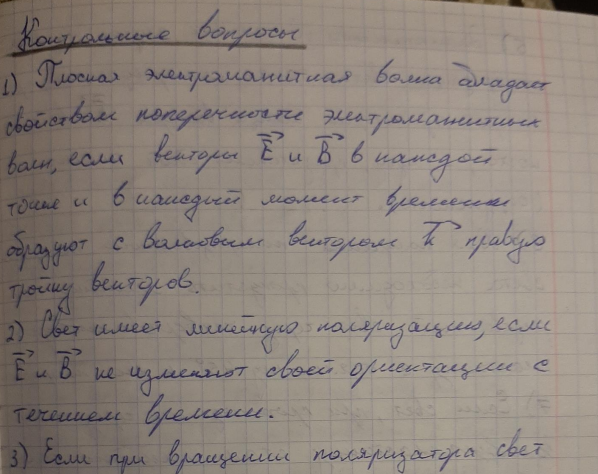 Контрольные вопросы
1) Плоская электромагнитная волна обладает
свойством поперечности электромагнитных
волн, если векторы E и B в каждой
точке и в каждый момент времени
образуют с волновым вектором k правую
тройку векторов.
2) Свет имеет линейную поляризацию, если
E и B не изменяют своей ориентации с
течением времени.
3) Если при вращении поляризатора свет